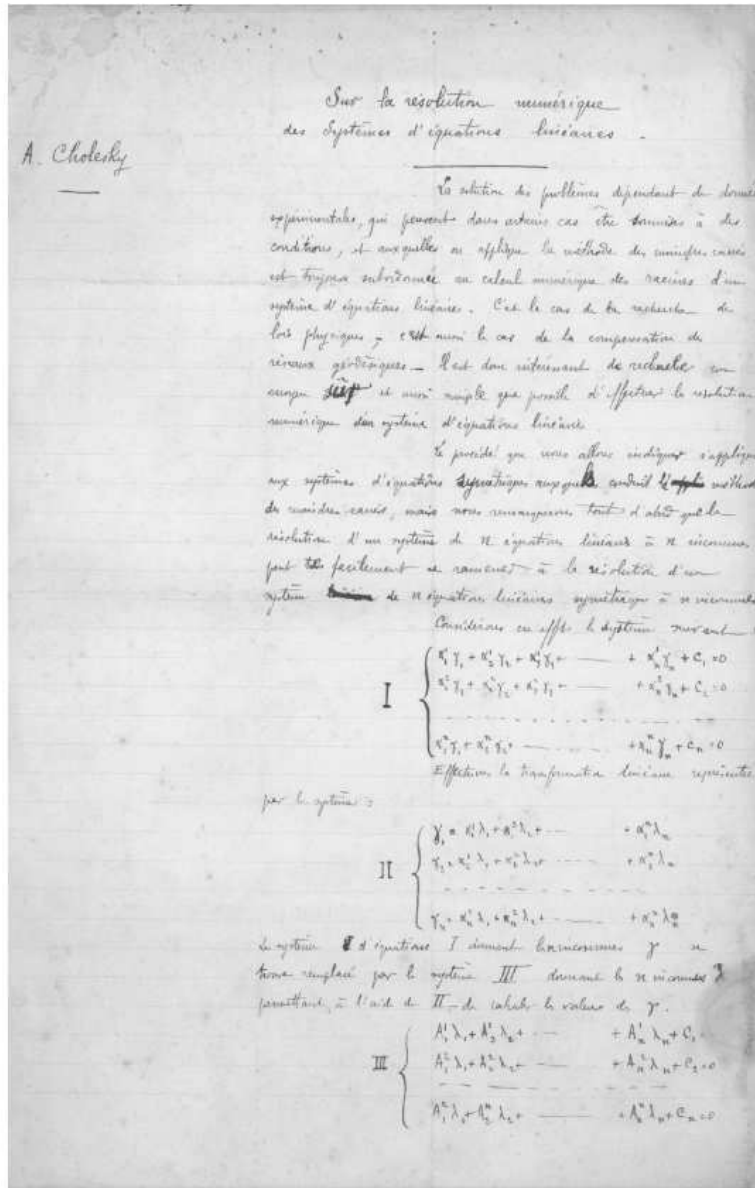 Sur la résolution numérique
des Systèmes d'équations linéaires.
A. Cholesky
La solution des problèmes dépendant de donné
expérimentales, qui peuvent dans certains cas être soumises à des
conditions, et auxquelles on applique la méthode des moindres carrés
est toujours subordonnée au calcul numérique des racines d'un
système d'équations linéaires. C'est le cas de la recherche de
lois physiques, c'est aussi le cas de la compensation de
réseaux géodésiques_ Il est donc intéressant de rechercher un
moyen sûr et aussi simple que possible d'effectuer la résolution
numérique d'un système d'équations linéaires
Le procédé que nous allons indiquer s'applique
aux systèmes d'équations symétriques auxquels conduit la méthod
des moindres carrés, mais nous remarquerons tout d'abord que la
résolution d'un système de n équations linéaires à n inconnues
peut très facilement se ramener à la résolution d'un
système de n équations linéaires symétriques à n inconnues
Considérons en effet le système suivant
I
α¹₁γ₁ + α¹₂γ₂ + α¹₃γ₃ + —— + α¹ₙγₙ + C₁ = 0
α²₁γ₁ + α²₂γ₂ + α²₃γ₃ + —— + α²ₙγₙ + C₂ = 0
αⁿ₁γ₁ + αⁿ₂γ₂ + —— + αⁿₙγₙ + Cₙ = 0
Effectuons la transformation linéaire représentée
par le système :
II
γ₁ = α¹₁λ₁ + α²₁λ₂ + —— + αⁿ₁λₙ
γ₂ = α¹₂λ₁ + α²₂λ₂ + —— + αⁿ₂λₙ
γₙ = α¹ₙλ₁ + α²ₙλ₂ + —— + αⁿₙλₙ
Le système d'équations I donnant les n inconnues γ se
trouve remplacé par le système III donnant les n inconnues λ
permettant, à l'aide de II, de calculer les valeurs des γ.
III
A¹₁λ₁ + A¹₂λ₂ + —— + A¹ₙλₙ + C₁
A²₁λ₁ + A²₂λ₂ + —— + A²ₙλₙ + C₂ = 0
Aⁿ₁λ₁ + Aⁿ₂λ₂ + —— + Aⁿₙλₙ + Cₙ = 0